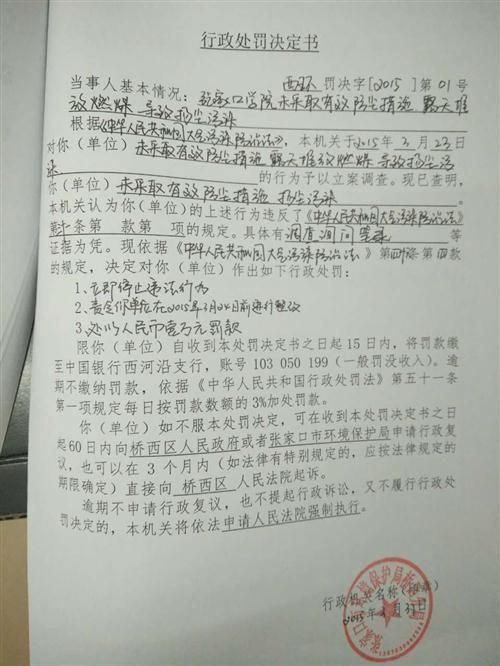 行政处罚决定书
西环 罚决字[2015]第 01号
当事人基本情况：张家口学院未采取有效防尘措施 露天堆
放燃煤 导致扬尘污染
根据《中华人民共和国大气污染防治法》，本机关于2015年3月23日
对你（单位）未采取有效防尘措施 露天堆放燃煤 导致扬尘污
染 的行为予以立案调查。现已查明，
你（单位）未采取有效防尘措施 扬尘污染 。
本机关认为你(单位)的上述行为违反了《中华人民共和国大气污染防治法》
第 条第 款第 项的规定。具体有 调查询问笔录 等
证据为凭。现依据《中华人民共和国大气污染防治法》第 条第四款
的规定，决定对你（单位）作出如下行政处罚：
1、立即停止违法行为
2、责令你单位在2015年 月24日前进行整改
3、处以人民币壹万元罚款
限你（单位）自收到本处罚决定书之日起 15 日内，将罚款缴
至中国银行西河沿支行，账号 103 050 199（一般罚没收入）。逾
期不缴纳罚款，依据《中华人民共和国行政处罚法》第五十一条
第一项规定每日按罚款数额的3%加处罚款。
你（单位）如不服本处罚决定，可在收到本处罚决定书之日
起 60 日内向桥西区人民政府或者张家口市环境保护局申请行政复
议，也可以在 3 个月内（如法律有特别规定的，应按法律规定的
期限确定）直接向 桥西区 人民法院起诉。
逾期不申请行政复议，也不提起行政诉讼，又不履行行政处
罚决定的，本机关将依法申请人民法院强制执行。
行政机关名称（印章）
2015年3月 日
张家口市环境保护局桥西分局